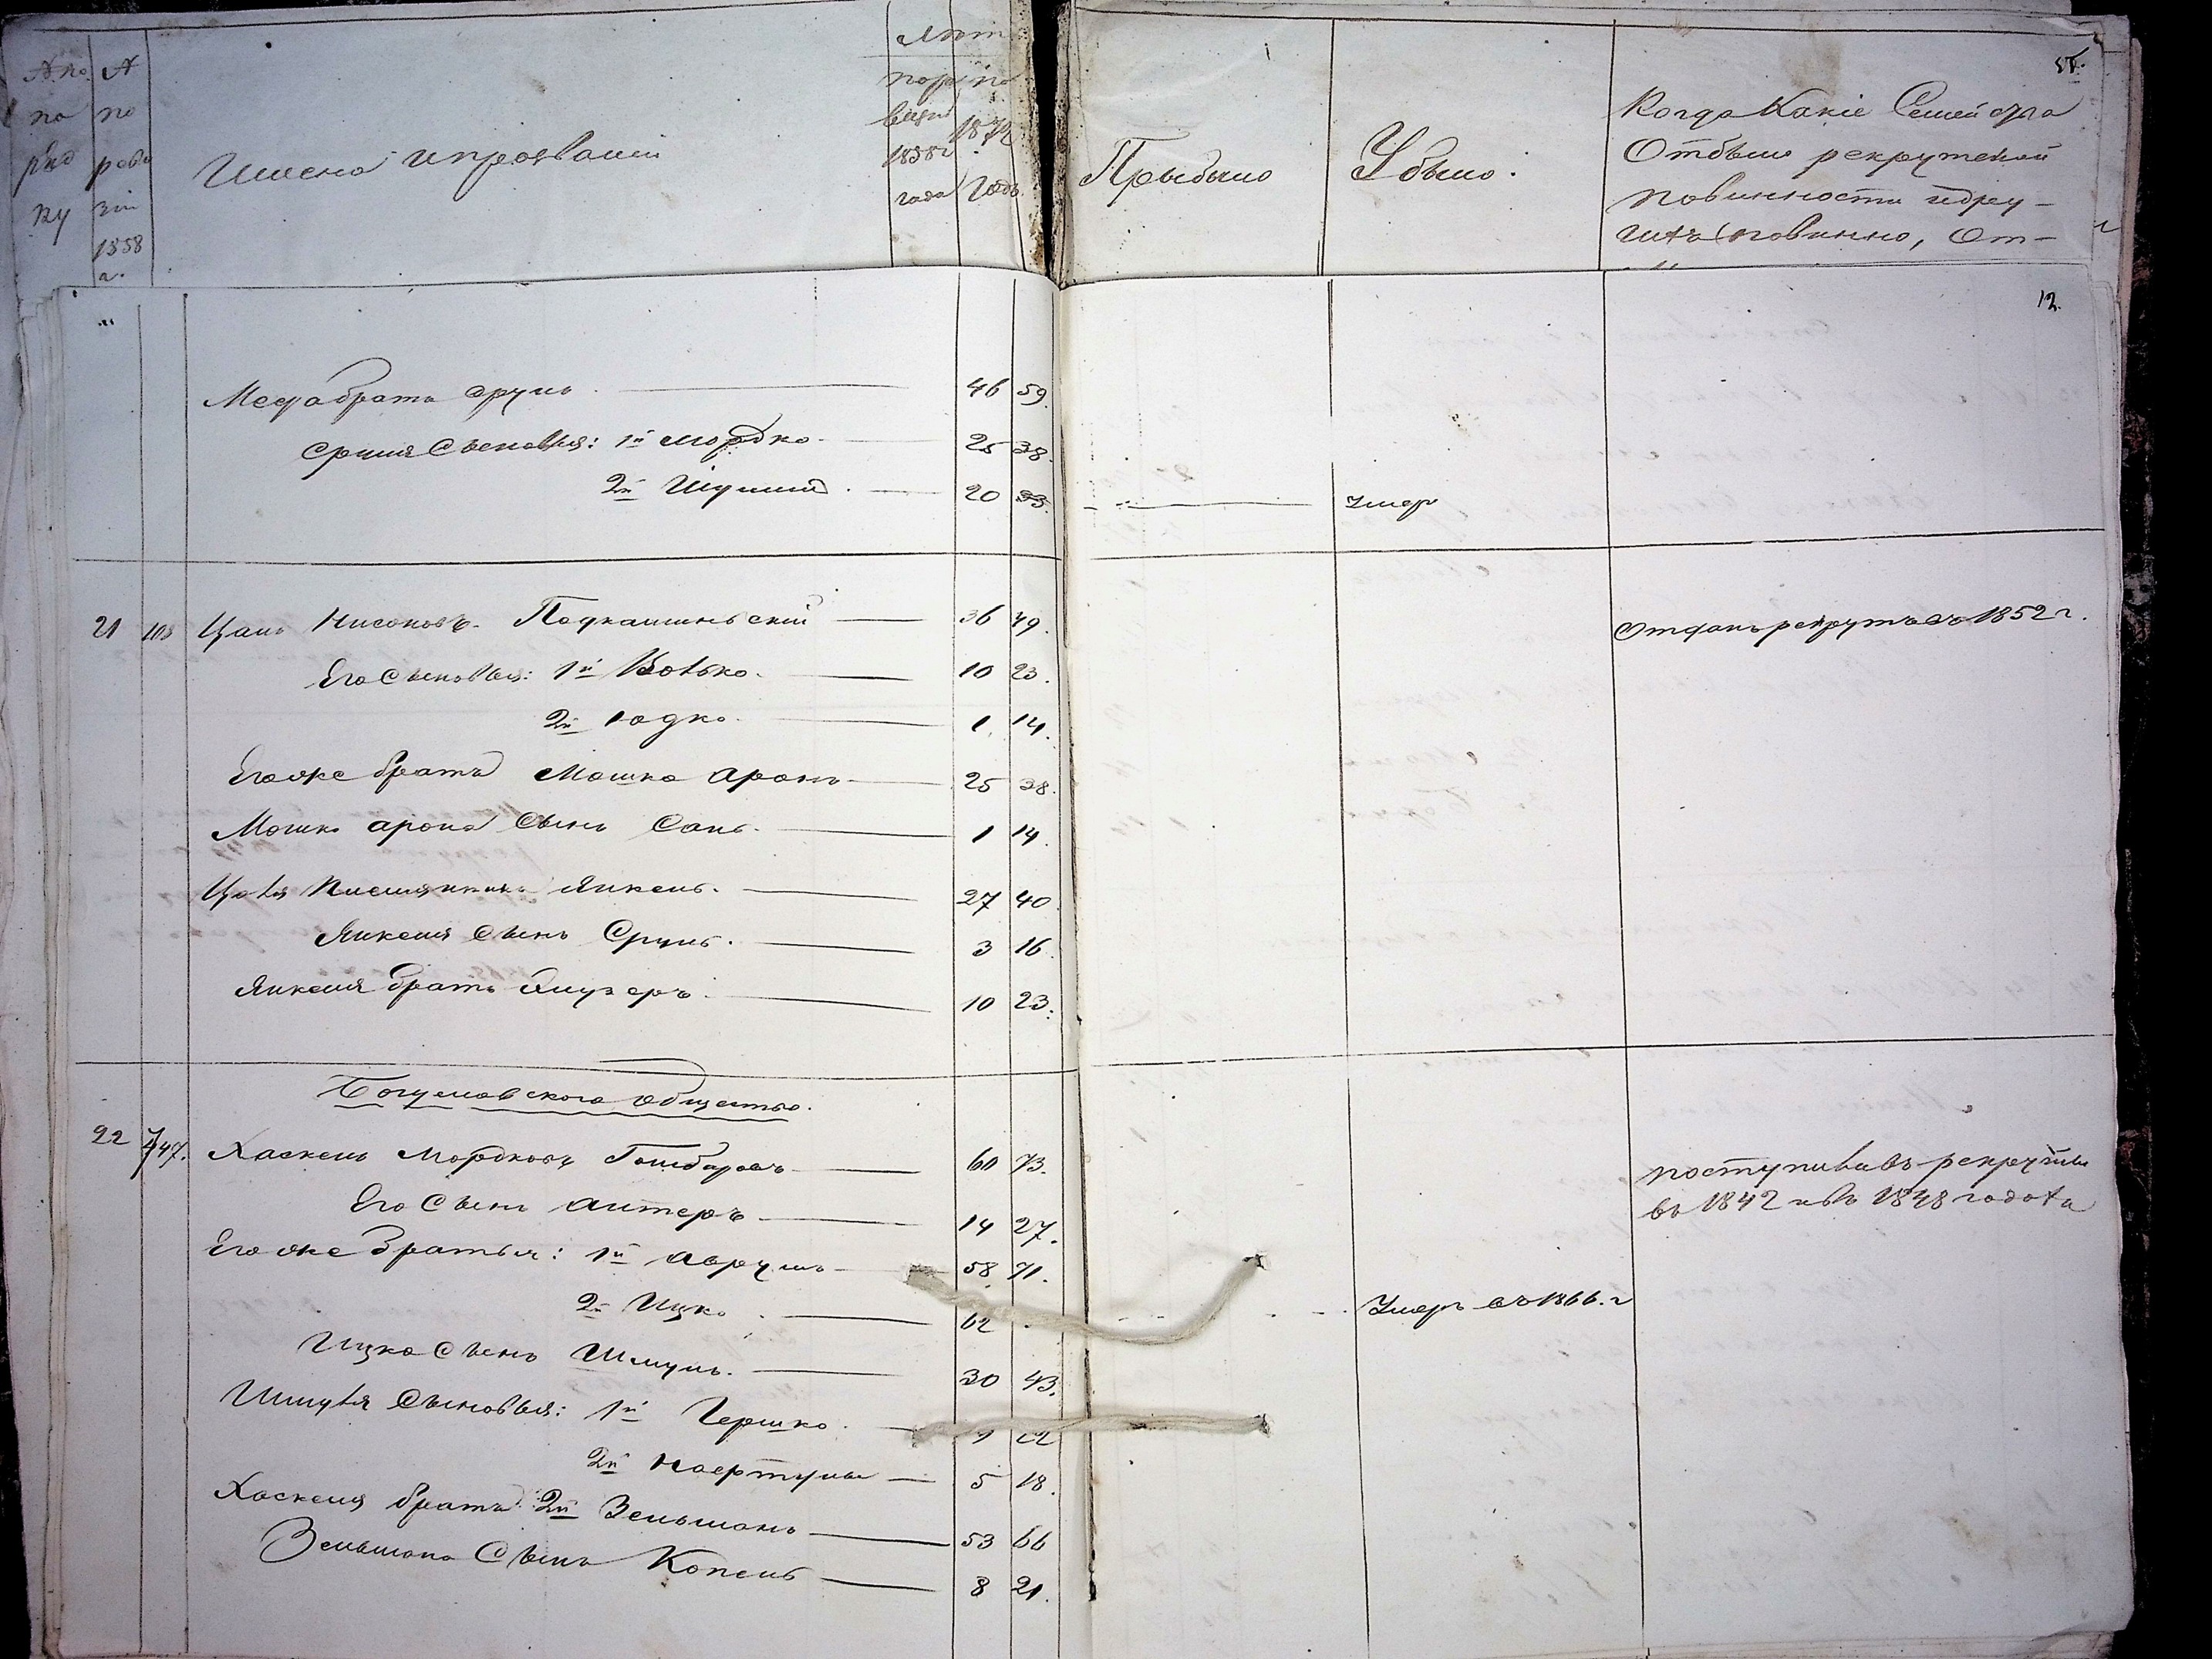 № по
по
ряд
ку
№
по
реви
зіи
1858
г.
Имена и прозваніи
Лѣт
по ре
визіи
1858
года
по
1872
Годъ
Прыбыло
Убыло.
Когда Какіе Семейства
Отбыли рекрутской
повинности
повинно, От-
12.
брата Срулъ 46 59.
Сруля Сыновья: 1й Мордко 25 38.
2й Шулим 20 33. Умер
21 103 Нисоновъ 36 49. Отданъ рекрутъ въ 1852 г.
Его Сыновья: 1й Волько 10 23.
2й Юдко 1 14.
Его же братъ Мошко Аронъ 25 38.
Мошка Арона Сынъ 1 14.
Янкель 27 40
Янкеля Сынъ Сруль 3 16.
Янкеля братъ 10 23.
Богуславского Общества.
22 747. Хаскель Мордковъ 60 73. поступили въ рекруты
въ 1842 и въ 1848 годахъ
Его Сынъ Алтеръ 14 27.
Его же Братья: 1й Аврумъ 58 71.
2й Ицко 62 Умеръ въ 1866. г
Ицка Сынъ Шмуль 30 43.
Шмуля Сыновья: 1й Гершко 9 22
2й 5 18.
Хаскеля братъ 2й Зельманъ 53 66
Зельмана Сынъ Копель 8 21.